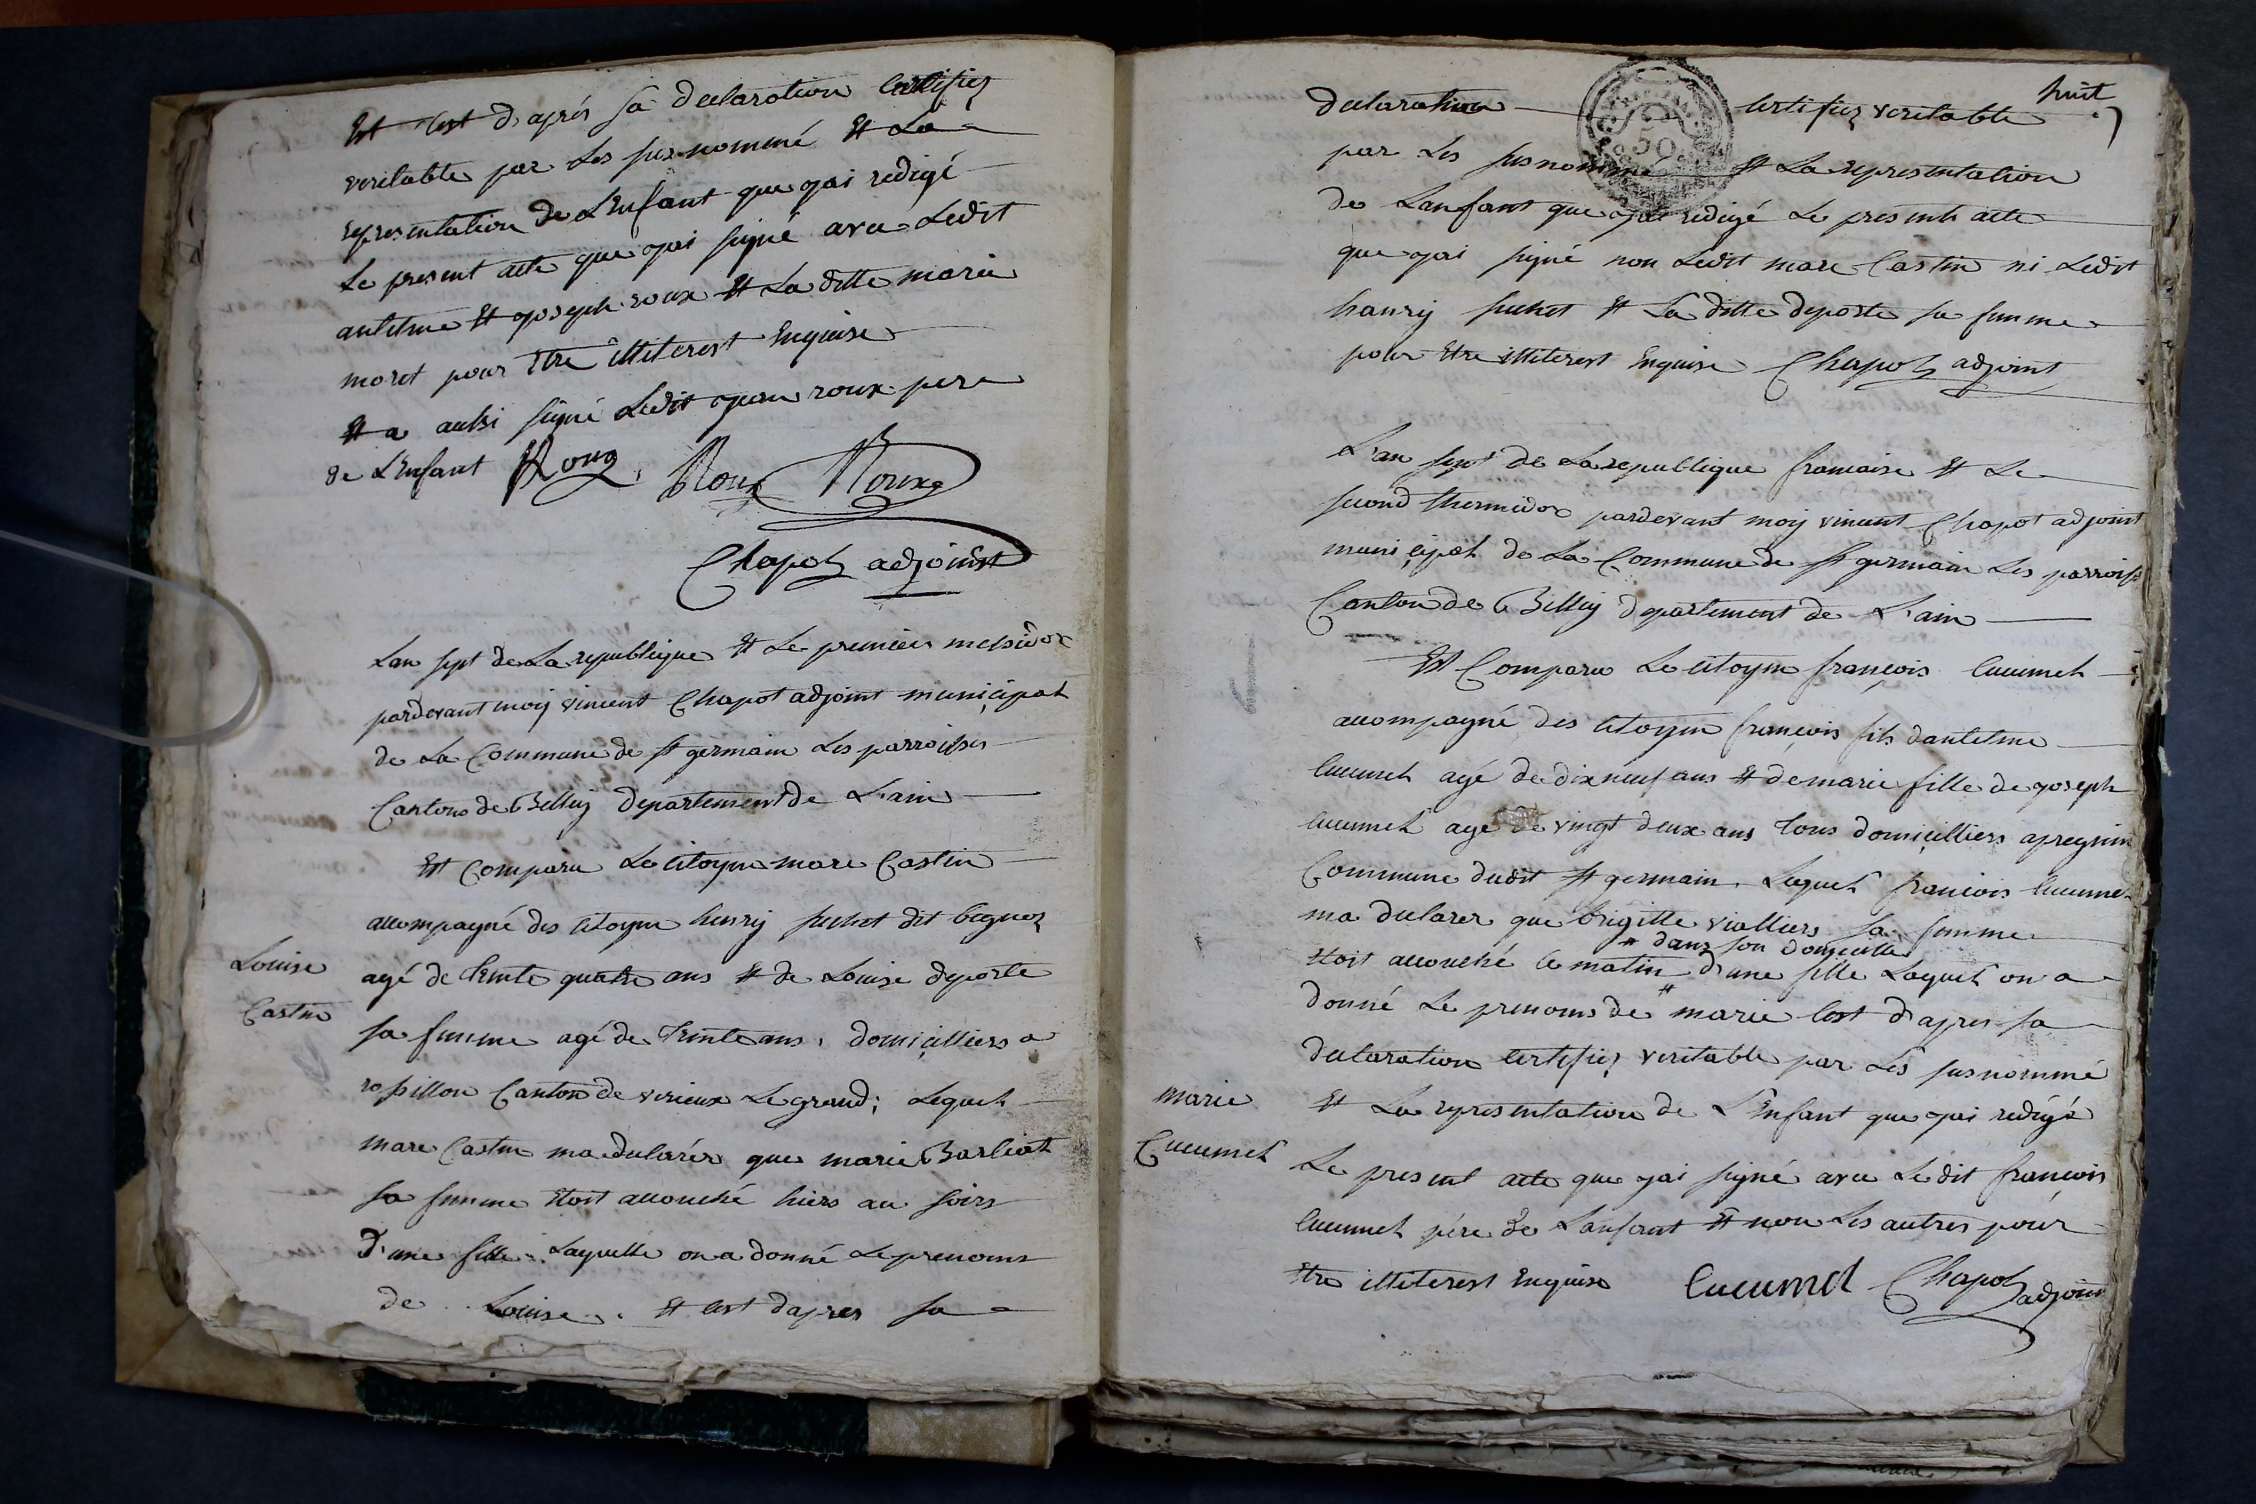 Et c'est d'aprés sa declaration certifiez
veritable par les susnommé et la
representation de L'Enfant que j'ai redigé
Le present acte que j'ai signé avec Ledit
antelme et joseph roux et La ditte marie
moret pour etre illiterest Enquise
et a aussi signé Ledit jean roux pere
de L'Enfant Roux Roux Roux
Chapot adjoint
Lan sept de La republique et Le premier messidor
pardevant moy vincent Chapot adjoint municipal
de La Commune de st germain Les parroisses
Canton de Belley departement de L'ain
Est Comparu Le citoyen marc Castin
accompagné des citoyen henry suchet dit
agé de trente quatre ans et de Louise deporte
Louise
Castin
sa femme agé de trente ans, domicilliers a
rossillon Canton de virieux Le grand; Lequel
marc Castin ma declarér que marie Barliot
sa femme etoit accouché hiers au soirs
D'une fille Laquelle on a donné Le prenoms
de Louise. Et c'est dapres sa
huit
declaration certifiez veritable
50
par Les susnommé et La representation
de Lanfant que j'ai redigé Le present acte
que j'ai signé non Ledit marc Castin ni Ledit
hanry suchet et La ditte deporte sa femme
pour Etre illiterest Enquise Chapot adjoint
L'an sept de La republique francaise et Le
second thermidor pardevant moy vincent Chapot adjoint
municipal de La Commune de st germain Les parroiss
Canton de Belley departement de L'ain
Est Comparu Le citoyen françois Cucumel
accompagné des citoyen françois fils dantelme
Cucumel agé de dix neuf ans et de marie fille de joseph
Cucumel agé de vingt deux ans tous domicilliers apregnin
Commune dudit st germain. Lequel francois Cucumel
ma declarer que brigitte vialliers sa femme
# dans son domicille
etoit accouché ce matin d'une fille Laquel on a
donné Le prenoms de # marie C'est d'apres sa
declaration certifiez veritable par Les susnommé
marie
Cucumel
et La representation de L'Enfant que j'ai redigé
Le present acte que j'ai signé avec Ledit françois
Cucumel pére de Lanfant et non Les autres pour
Etre illiterest Enquise Cucumel Chapot adjoint